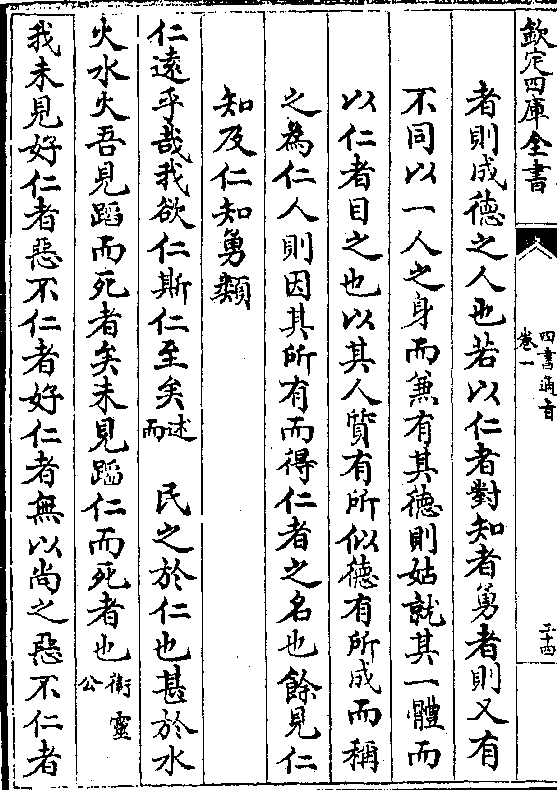 欽定四庫全書
四書通旨
卷一
二十四
者則成德之人也若以仁者對知者勇者則又有
不同以一人之身而兼有其德則姑就其一體而
以仁者目之也以其人質有所似德有所成而稱
之為仁人則因其所有而得仁者之名也餘見仁
知及仁知勇類
仁遠乎哉我欲仁斯仁至矣述而 民之於仁也甚於水
火水火吾見蹈而死者矣未見蹈仁而死者也衛靈公
我未見好仁者惡不仁者好仁者無以尚之惡不仁者